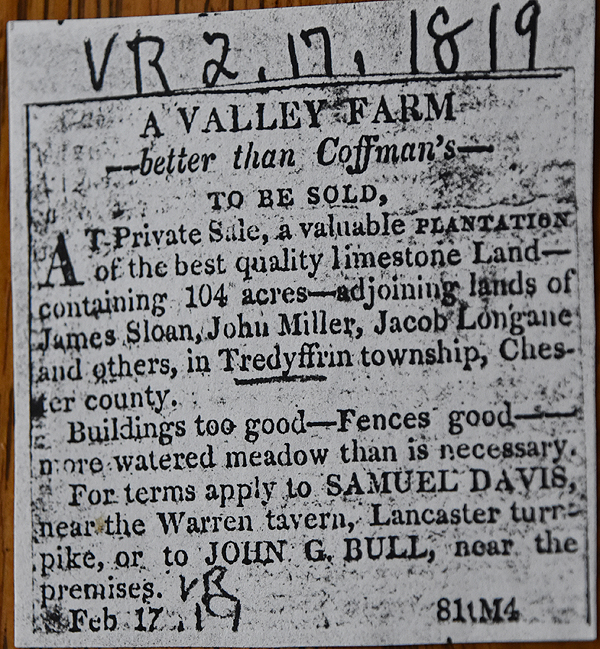 VR 2.17.1819
A VALLEY FARM
—better than Coffman's—
TO BE SOLD,
AT Private Sale, a valuable PLANTATION
of the best quality limestone Land—
containing 104 acres—adjoining lands of
James Sloan, John Miller, Jacob Longane
and others, in Tredyffrin township, Ches-
ter county.
Buildings too good—Fences good—
more watered meadow than is necessary.
For terms apply to SAMUEL DAVIS,
near the Warren tavern, Lancaster turn-
pike, or to JOHN G. BULL, near the
premises. VR
Feb 17. 19 81tM4